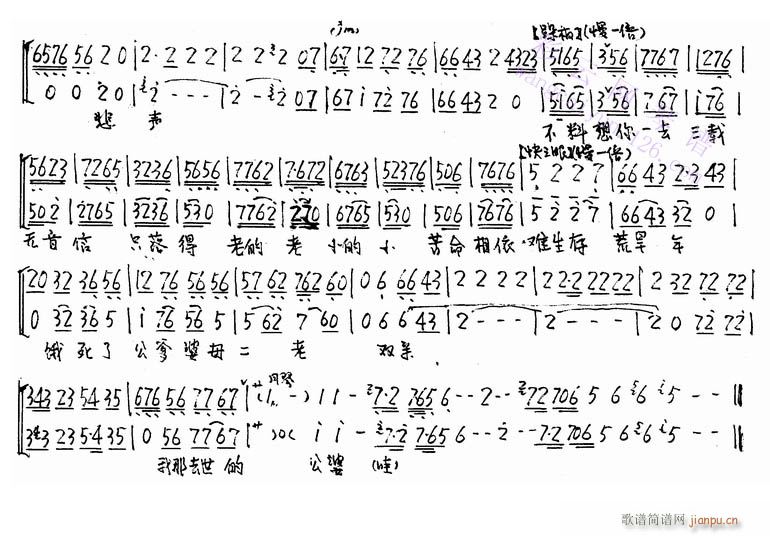 【跺板】(慢一倍)
6576 56 20 | 2· 2 2 2 | 2 2 2 07 | 67 12 72 76 | 66 43 2 4323 | 5165 | 356 | 7767 | 1276 |
0 0 20 | 2 - - - | 2 - 2 07 | 67 i 72 76 | 66 43 2 0 | 5165 | 356 | 767 | i76 |
悲 声 不 料 想 你 一 去 三 载
(慢一倍)
5623 | 7265 | 3236 | 5656 | 7762 | 7·672 | 6763 | 52376 | 506 | 7676 | 5 2 2 7 | 66 43 2·3 43 |
502 | 2765 | 3236 | 530 | 7762 | 270 | 6765 | 530 | 506 | 7676 | 5 2 2 7 | 66 43 32 0 |
无 音 信 只 落 得 老 的 老 小 的 小 苦 命 相 依 难 生 存 荒 旱 年
20 32 36 56 | 12 76 56 56 | 57 62 762 60 | 0 6 66 43 | 2 2 2 2 | 2·2 2222 | 2 32 72 72 |
0 32 36 5 | i 76 56 5 | 5 62 7 60 | 0 6 6 43 | 2 - - - | 2 - - - | 2 0 72 72 |
饿 死 了 公 爹 婆 母 二 老 双 亲
343 23 54 35 | 676 56 77 67 | 1 1 - 7·2 7656 - - 2 - - 72 706 5 6 6 5 - - ‖
343 23 5·4 35 | 0 56 77 67 | i i - 7·2 7·65 6 - - 2 - - 7·2 706 5 6 6 5 - - ‖
我 那 去 世 的 公 婆 (哇)
歌谱简谱网 jianpu.cn